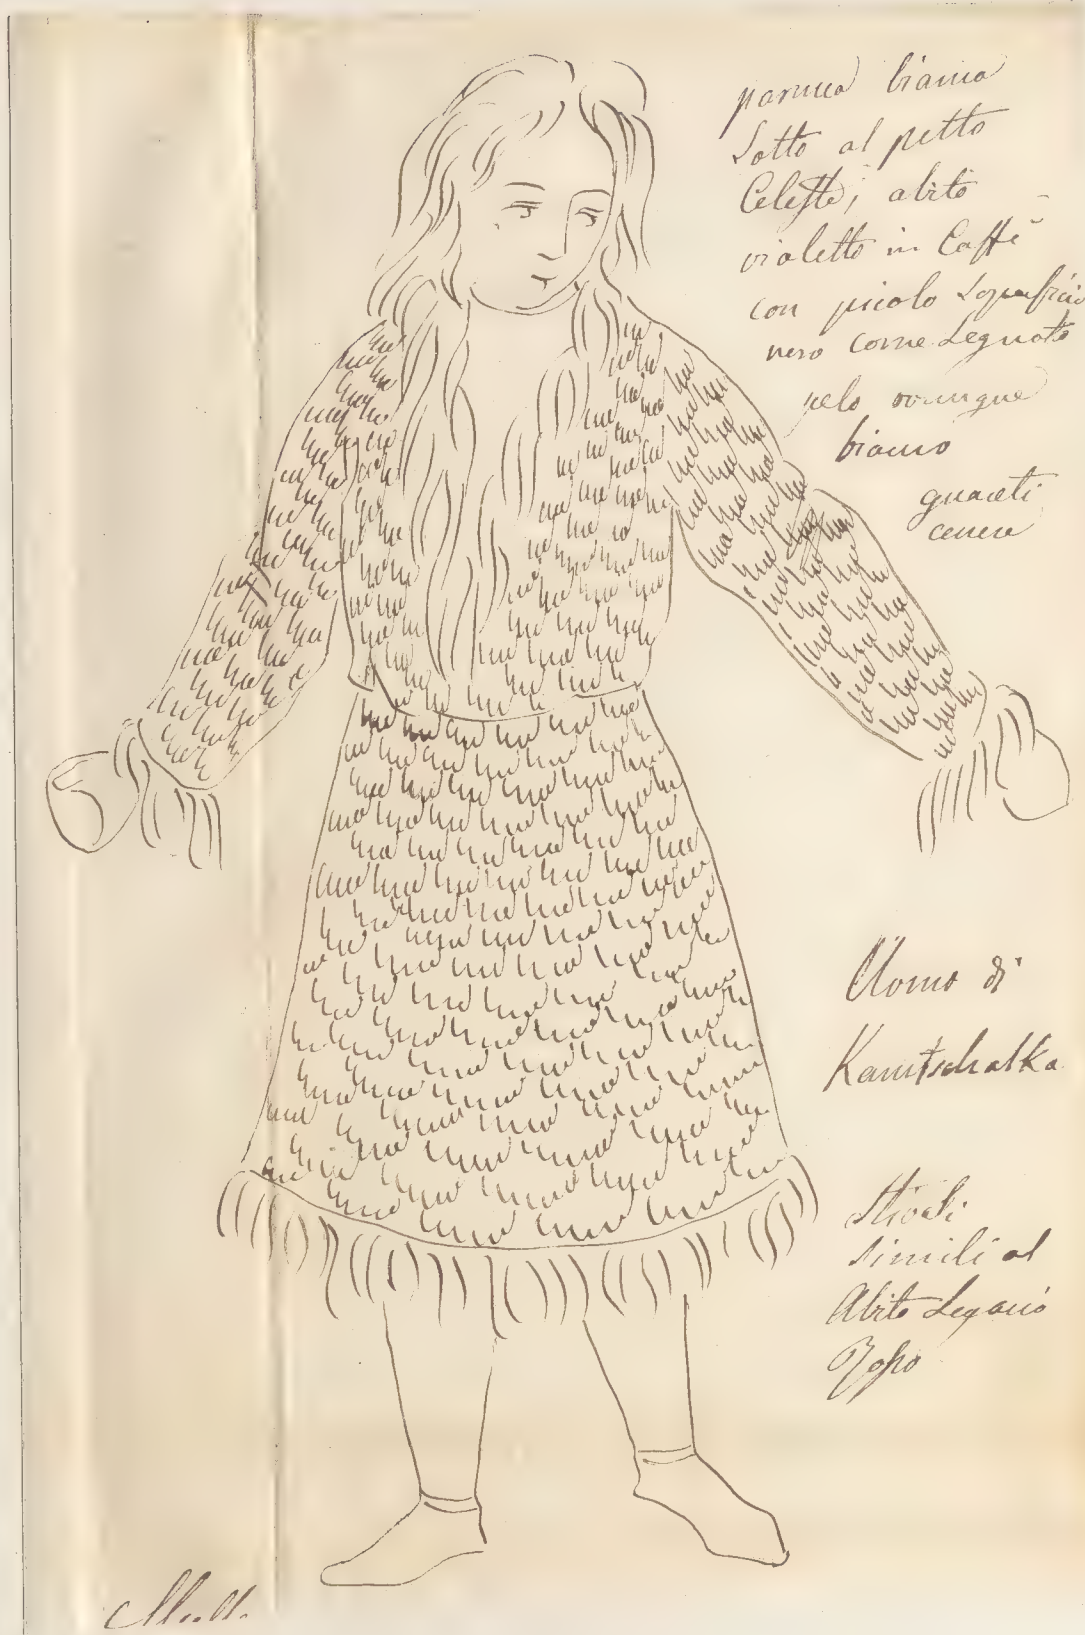 parruca bianca
Sotto al petto
Celeste; abito
violetto in Caffè
con picolo
nero come Legnato
pelo
bianco
guanti
cenere
Uomo di
Kamtschatka
Stivali
simili al
Abito Legacio
Rosso